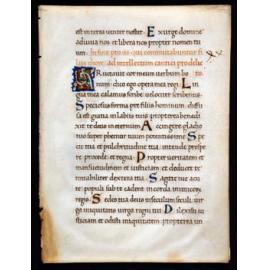 est in terra venter noster. Exurge domine
adiuva nos et libera nos propter nomen tu
um. In fine pro iis qui commutabuntur fi
liis chore ad intellectum cantici pro dilec
Eructavit cor meum verbum bo
num: dico ego opera mea regi. Lin
gua mea calamus scribe: velociter scribentis.
Speciosus forma pre filiis hominum diffu
sa est gratia in labiis tuis propterea benedi
xit te deus in eternum. Accingere gladio
tuo super femur tuum potentissime. Spe
cie tua et pulchritudine tua: intende prospe
re procede et regna. Propter veritatem et
mansuetudinem et iusticiam: et deducet te
mirabiliter dextera tua. Sagitte tue acu
te: populi sub te cadent in corda inimicorum
regis. Sedes tua deus in seculum seculi: vir
ga directionis virga regni tui. Dilexisti iu
sticiam et odisti iniquitatem propterea